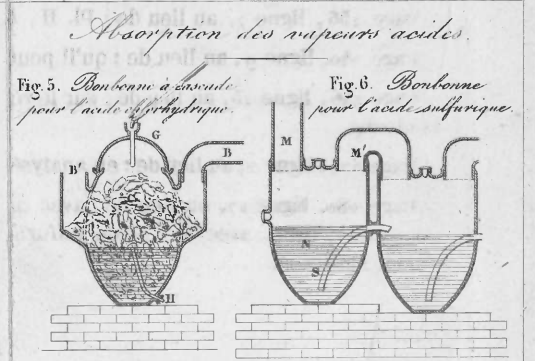 Absorption des vapeurs acides.
Fig. 5. Bonbonne à cascade
pour l'acide chlorhydrique.
Fig. 6. Bonbonne
pour l'acide sulfurique.
G
B'
B
H
M
M'
N
S